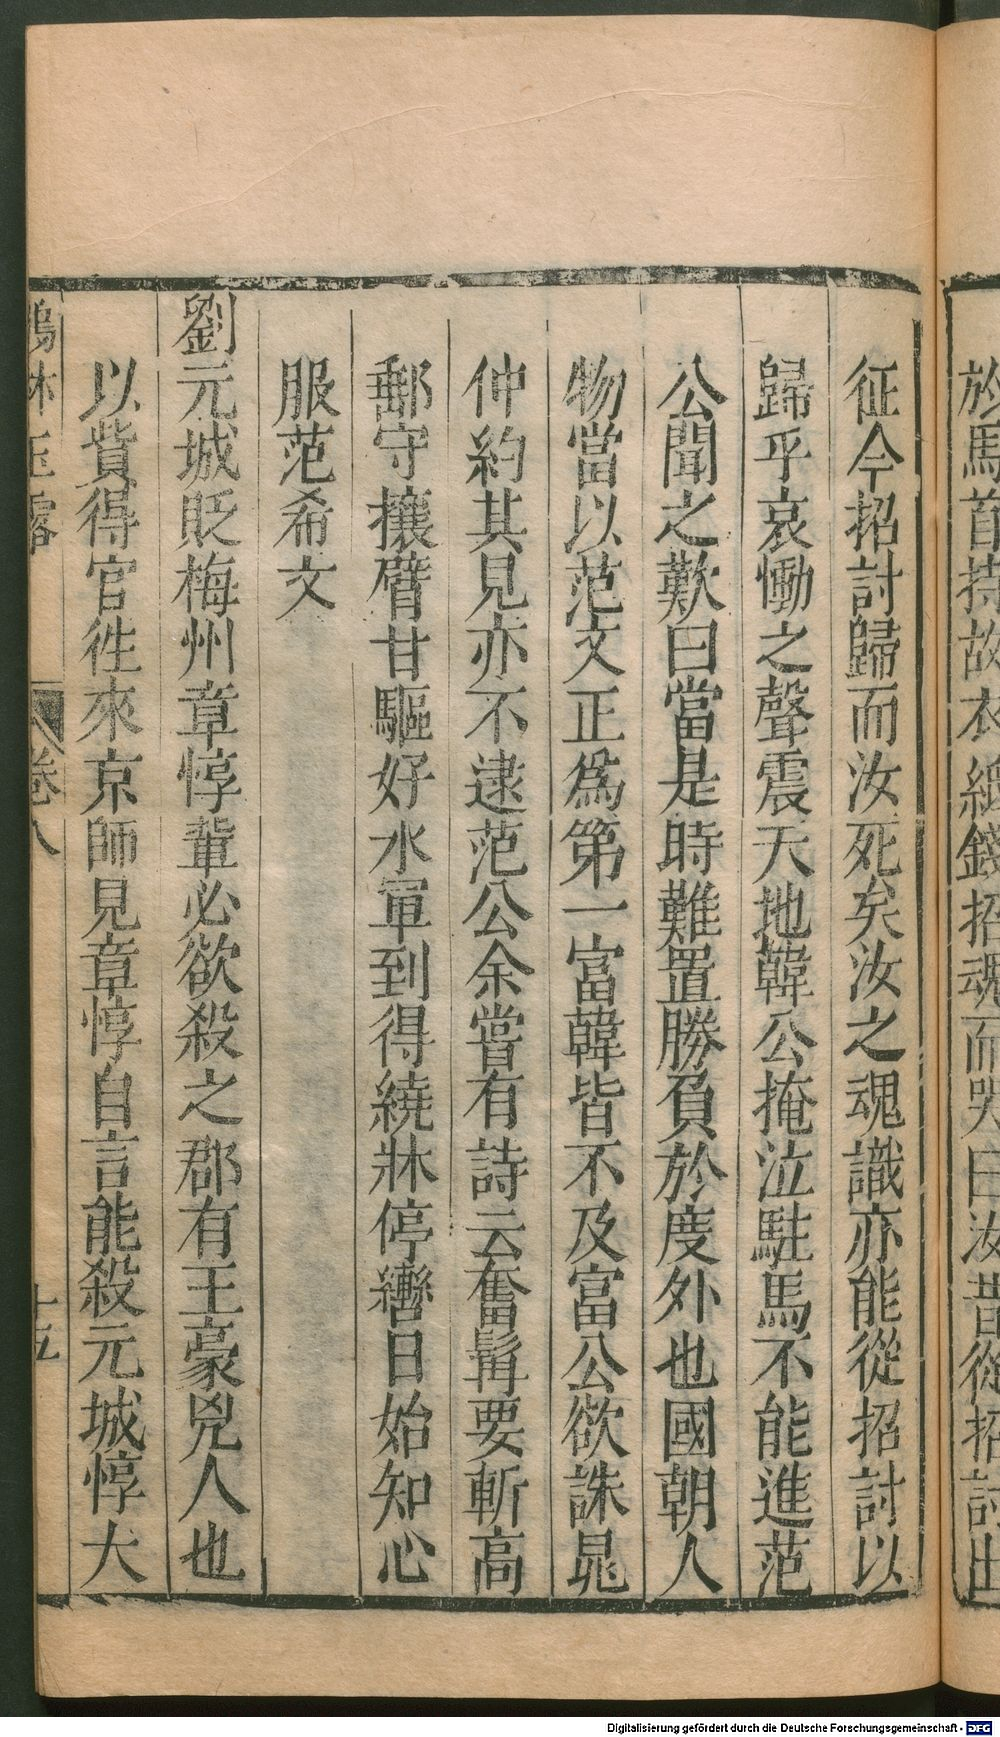 於馬首持故衣紙錢招魂而哭曰汝昔從招討出
征今招討歸而汝死矣汝之魂識亦能從招討以
歸乎哀慟之聲震天地韓公掩泣駐馬不能進范
公聞之歎曰當是時難置勝負於度外也國朝人
物當以范文正爲第一富韓皆不及富公欲誅晁
仲約其見亦不逮范公余嘗有詩云奮髯要斬高
郵守攘臂甘驅好水軍到得繞牀停轡日始知心
服范希文
劉元城貶梅州章惇輩必欲殺之郡有王豪兇人也
以貲得官徃來京師見章惇自言能殺元城惇大
鶴林玉露 卷八 十五
Digitalisierung gefördert durch die Deutsche Forschungsgemeinschaft - DFG